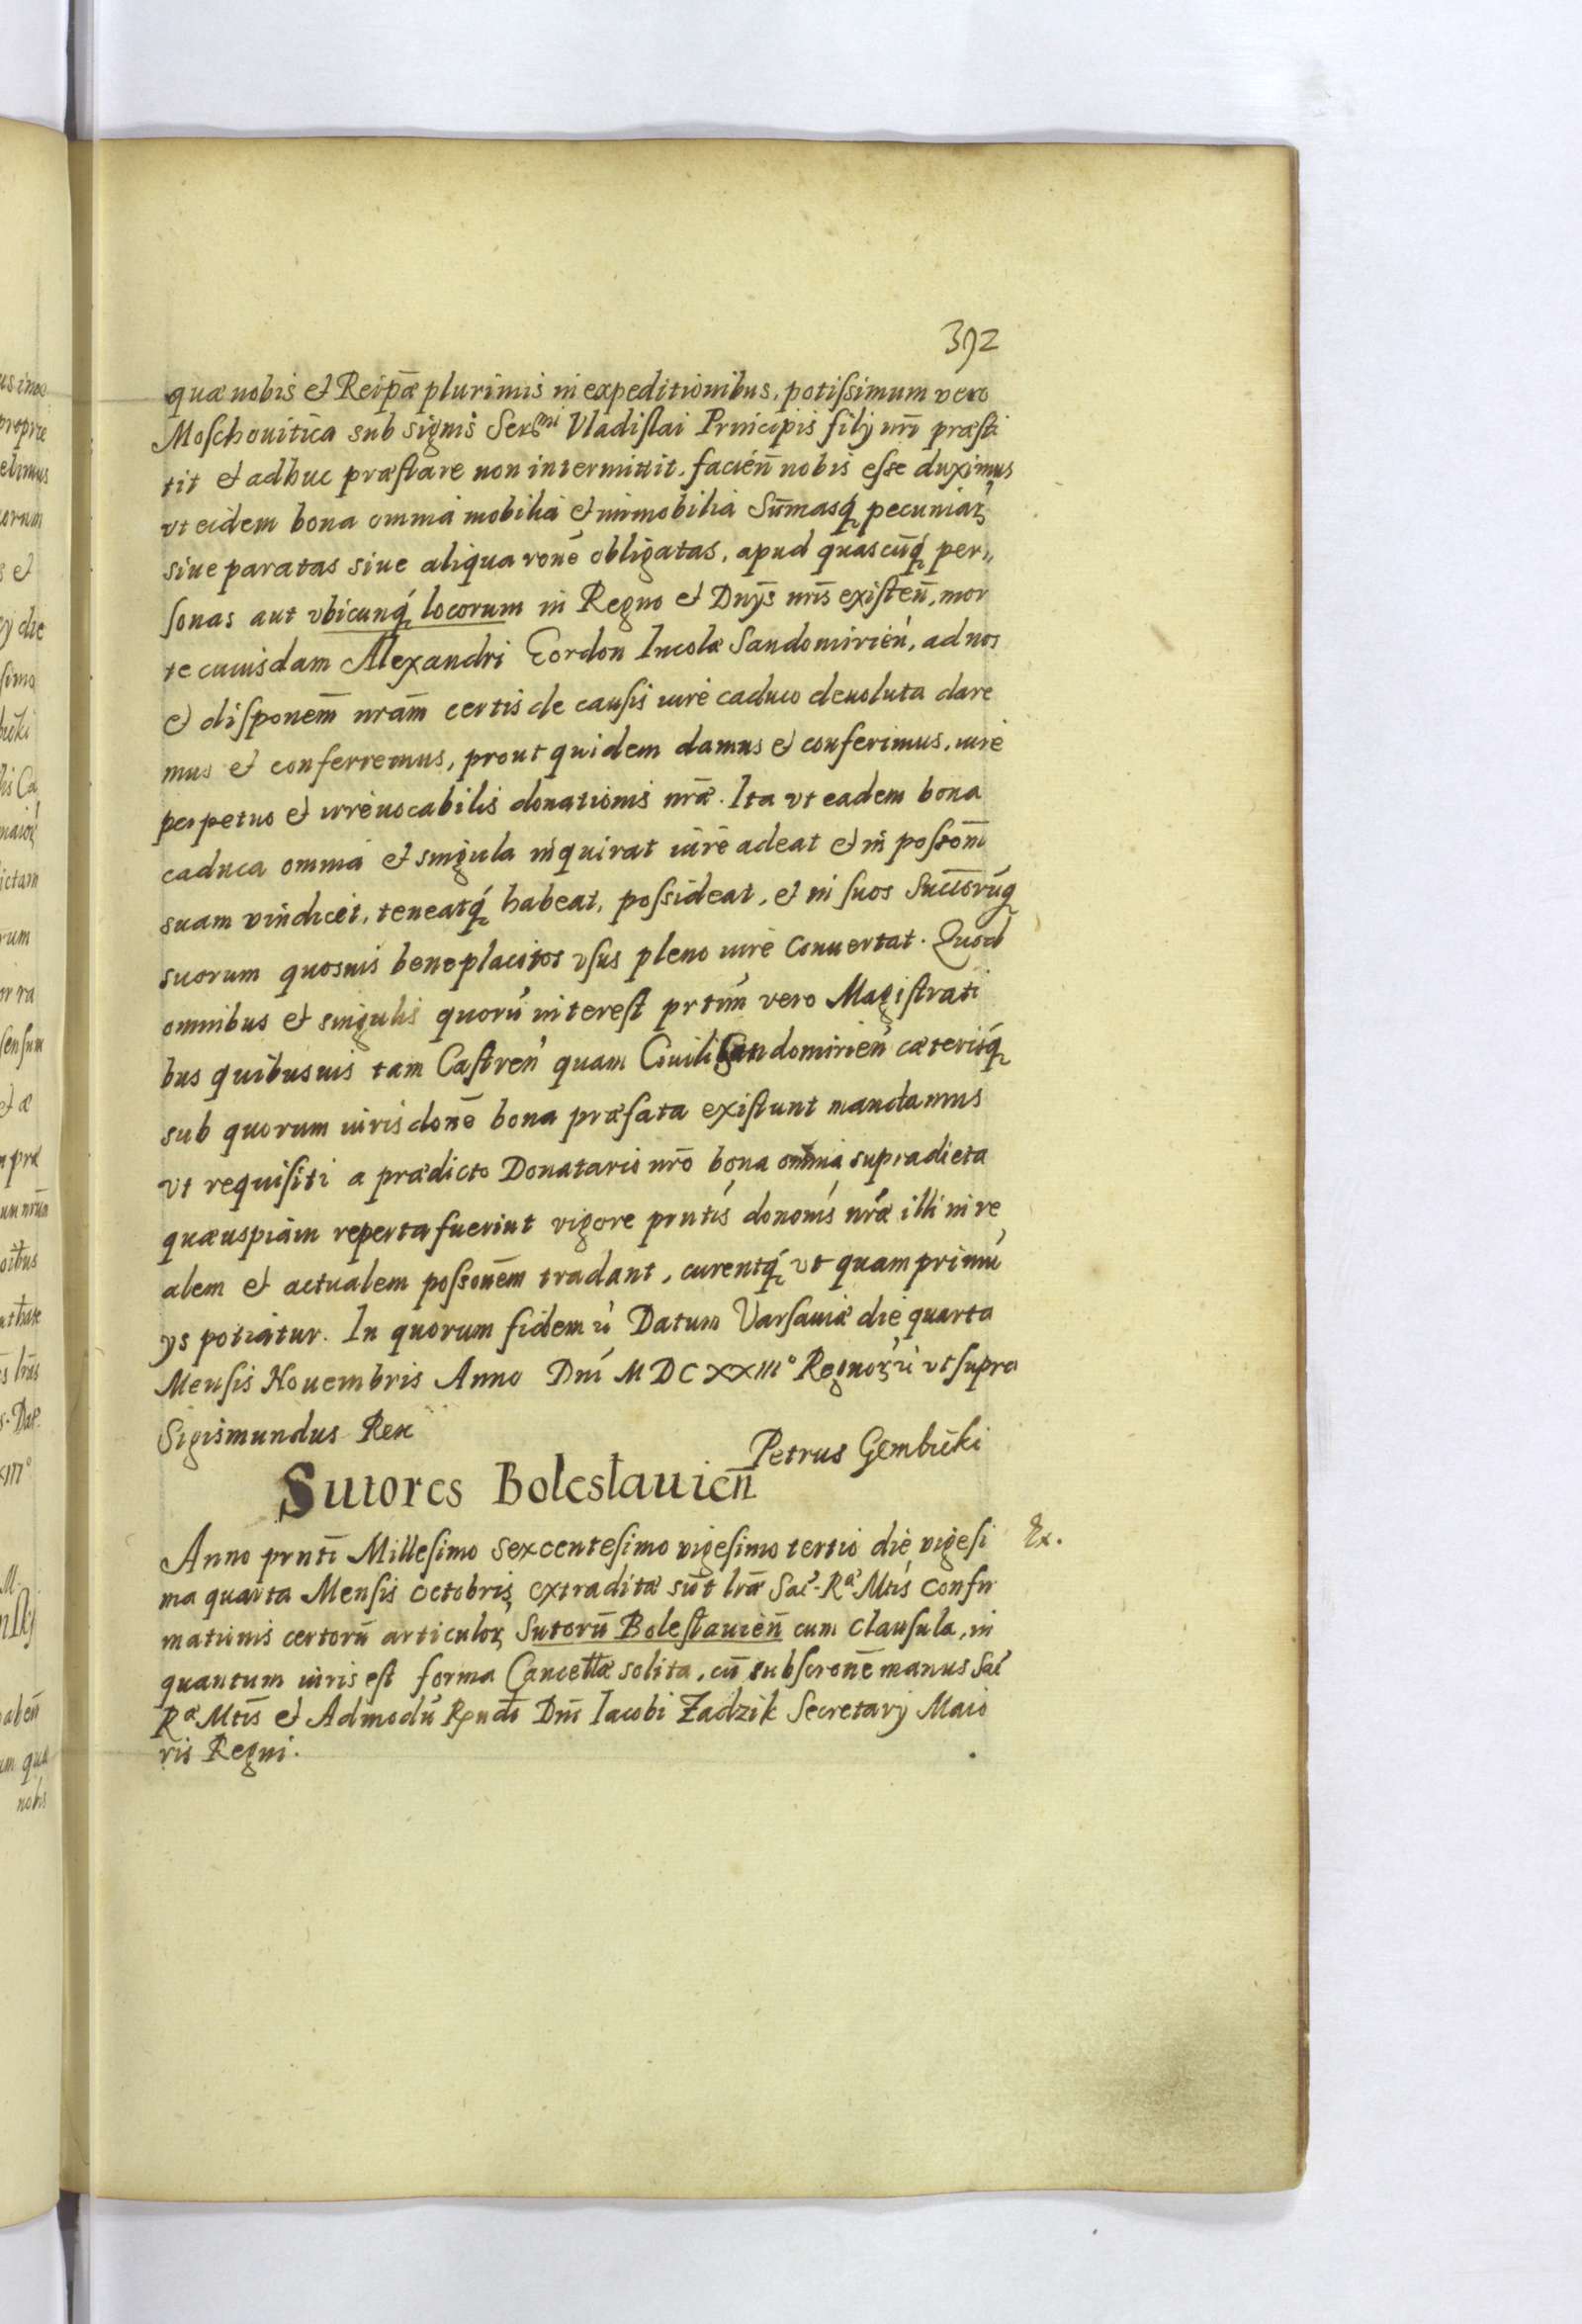 392
quæ nobis et Reipā plurimis in expeditionibus, potissimum vero
Moschouitica sub signis Serᵐⁱ Vladislai Principis filij nrī præsti
tit et adhuc præstare non intermittit. facień nobis esse duximus,
vt eidem bona omnia mobilia et immobilia Sūmasq́ pecuniaꝝ
siue paratas siue aliqua ronē obligatas, apud quascūq́ per„
sonas aut vbicunq́ locorum in Regno et Dnijs nrīs existeñ, mor
te cuiusdam Alexandri Gordon Incolæ Sandomirień, ad nos
et disponem̄ nram̄ certis de causis iure caduco deuoluta dare
mus et conferremus, prout quidem damus et conferimus, iure
perpetuo et irreuocabilis donationis nrǣ. Ita vt eadem bona
caduca omnia et singula inquirat iure adeat et in possom̄
suam vindicet, teneatq́ habeat, possideat, et in suos Succorūq́
suorum quosuis beneplacitos vsus pleno iure conuertat. Quod
omnibus et singulis quorū interest prtim̄ vero Magistrati
bus quibusuis tam Castreń quam Ciuili Sandomirień cæterisq́
sub quorum iurisdonē bona præfata existunt mandamus
vt requisiti a prædicto Donatario nrō bona omnia supradicta
quæuspiam reperta fuerint vigore prntis donōnis nrǣ illi in re
alem et actualem possonēm tradant, curentq́ vt quam primū
ijs potiatur. In quorum fidem ɾc̄ Datum Varsauiæ die quarta
Mensis Nouembris Anno Dnī MDCXXIIIº Regnoꝝ ɾc̄ vt supra
Sigismundus Rex
Petrus Gembicki
Sutores Boleslauień
Anno prntī Millesimo sexcentesimo vigesimo tertio die vigesi
Ex.
ma quarta Mensis Octobris extraditæ sūt lrǣ Sac̄. Rᵃ Mtis Confir
mationis certorū articuloꝝ Sutorū Boleslauień cum clausula, in
quantum iuris est forma Cancellǣ solita, cū subscronē manus Sac̄
Rᵃ Mtis et Admodū Rndi Dnī Iacobi Zadzik Secretarij Maio
ris Regni.